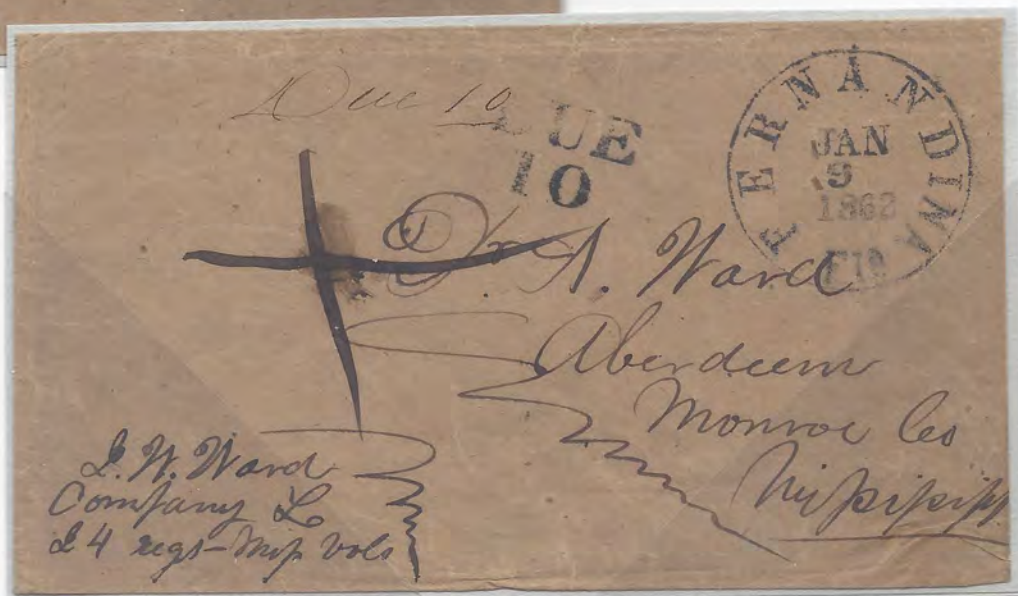 Due 10
DUE
10
FERNANDINA
JAN
9
1862
Fla
Dr. A. Ward
Aberdeen
Monroe Co
Mississippi
L. W. Ward
Company L
24 regt-Miss Vols